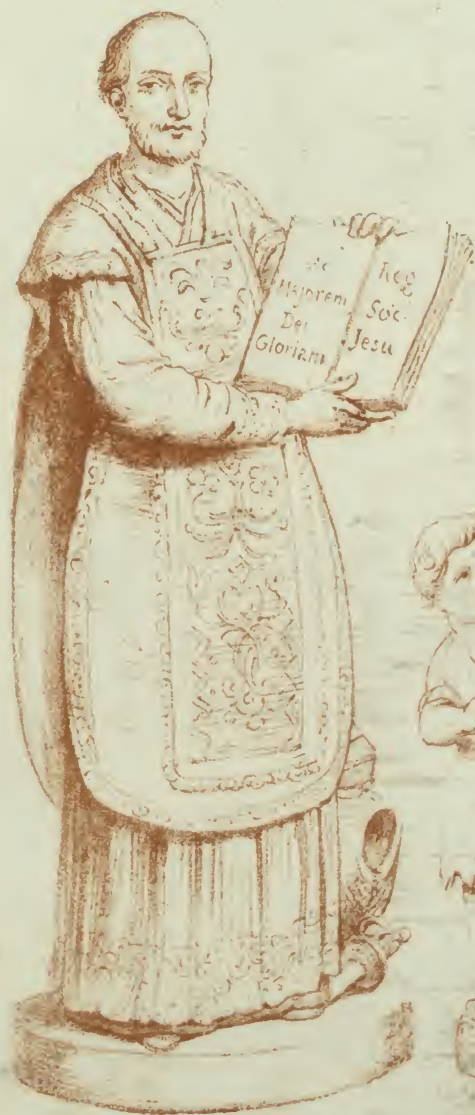 Ad
Majorem
Dei
Gloriam
Reg
Soc.
Jesu